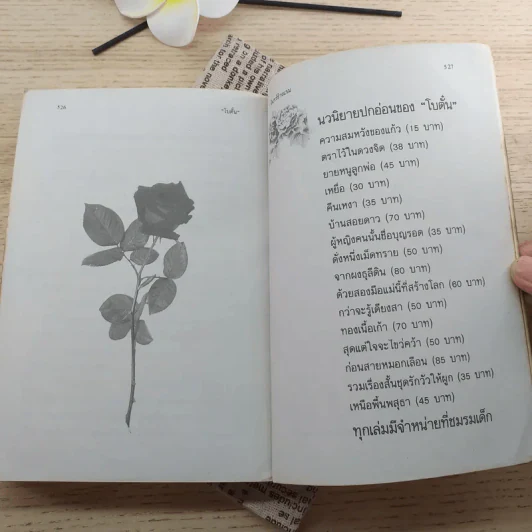 "โบตั๋น"
นวนิยายปกอ่อนของ "โบตั๋น"
ความสมหวังของแก้ว (15 บาท)
ตราไว้ในดวงจิต (38 บาท)
ยายหนูลูกพ่อ (45 บาท)
เหยื่อ (30 บาท)
คืนเหงา (35 บาท)
บ้านสอยดาว (70 บาท)
ผู้หญิงคนนั้นชื่อบุญรอด (35 บาท)
ดั่งหนึ่งเม็ดทราย (50 บาท)
จากผงธุลีดิน (80 บาท)
ด้วยสองมือแม่นี้ที่สร้างโลก (60 บาท)
กว่าจะรู้เดียงสา (50 บาท)
ทองเนื้อเก้า (70 บาท)
สุดแต่ใจจะไขว่คว้า (50 บาท)
ก่อนสายหมอกเลือน (85 บาท)
รวมเรื่องสั้นชุดรักวัวให้ผูก (35 บาท)
เหนือพื้นพสุธา (45 บาท)
ทุกเล่มมีจำหน่ายที่ชมรมเด็ก